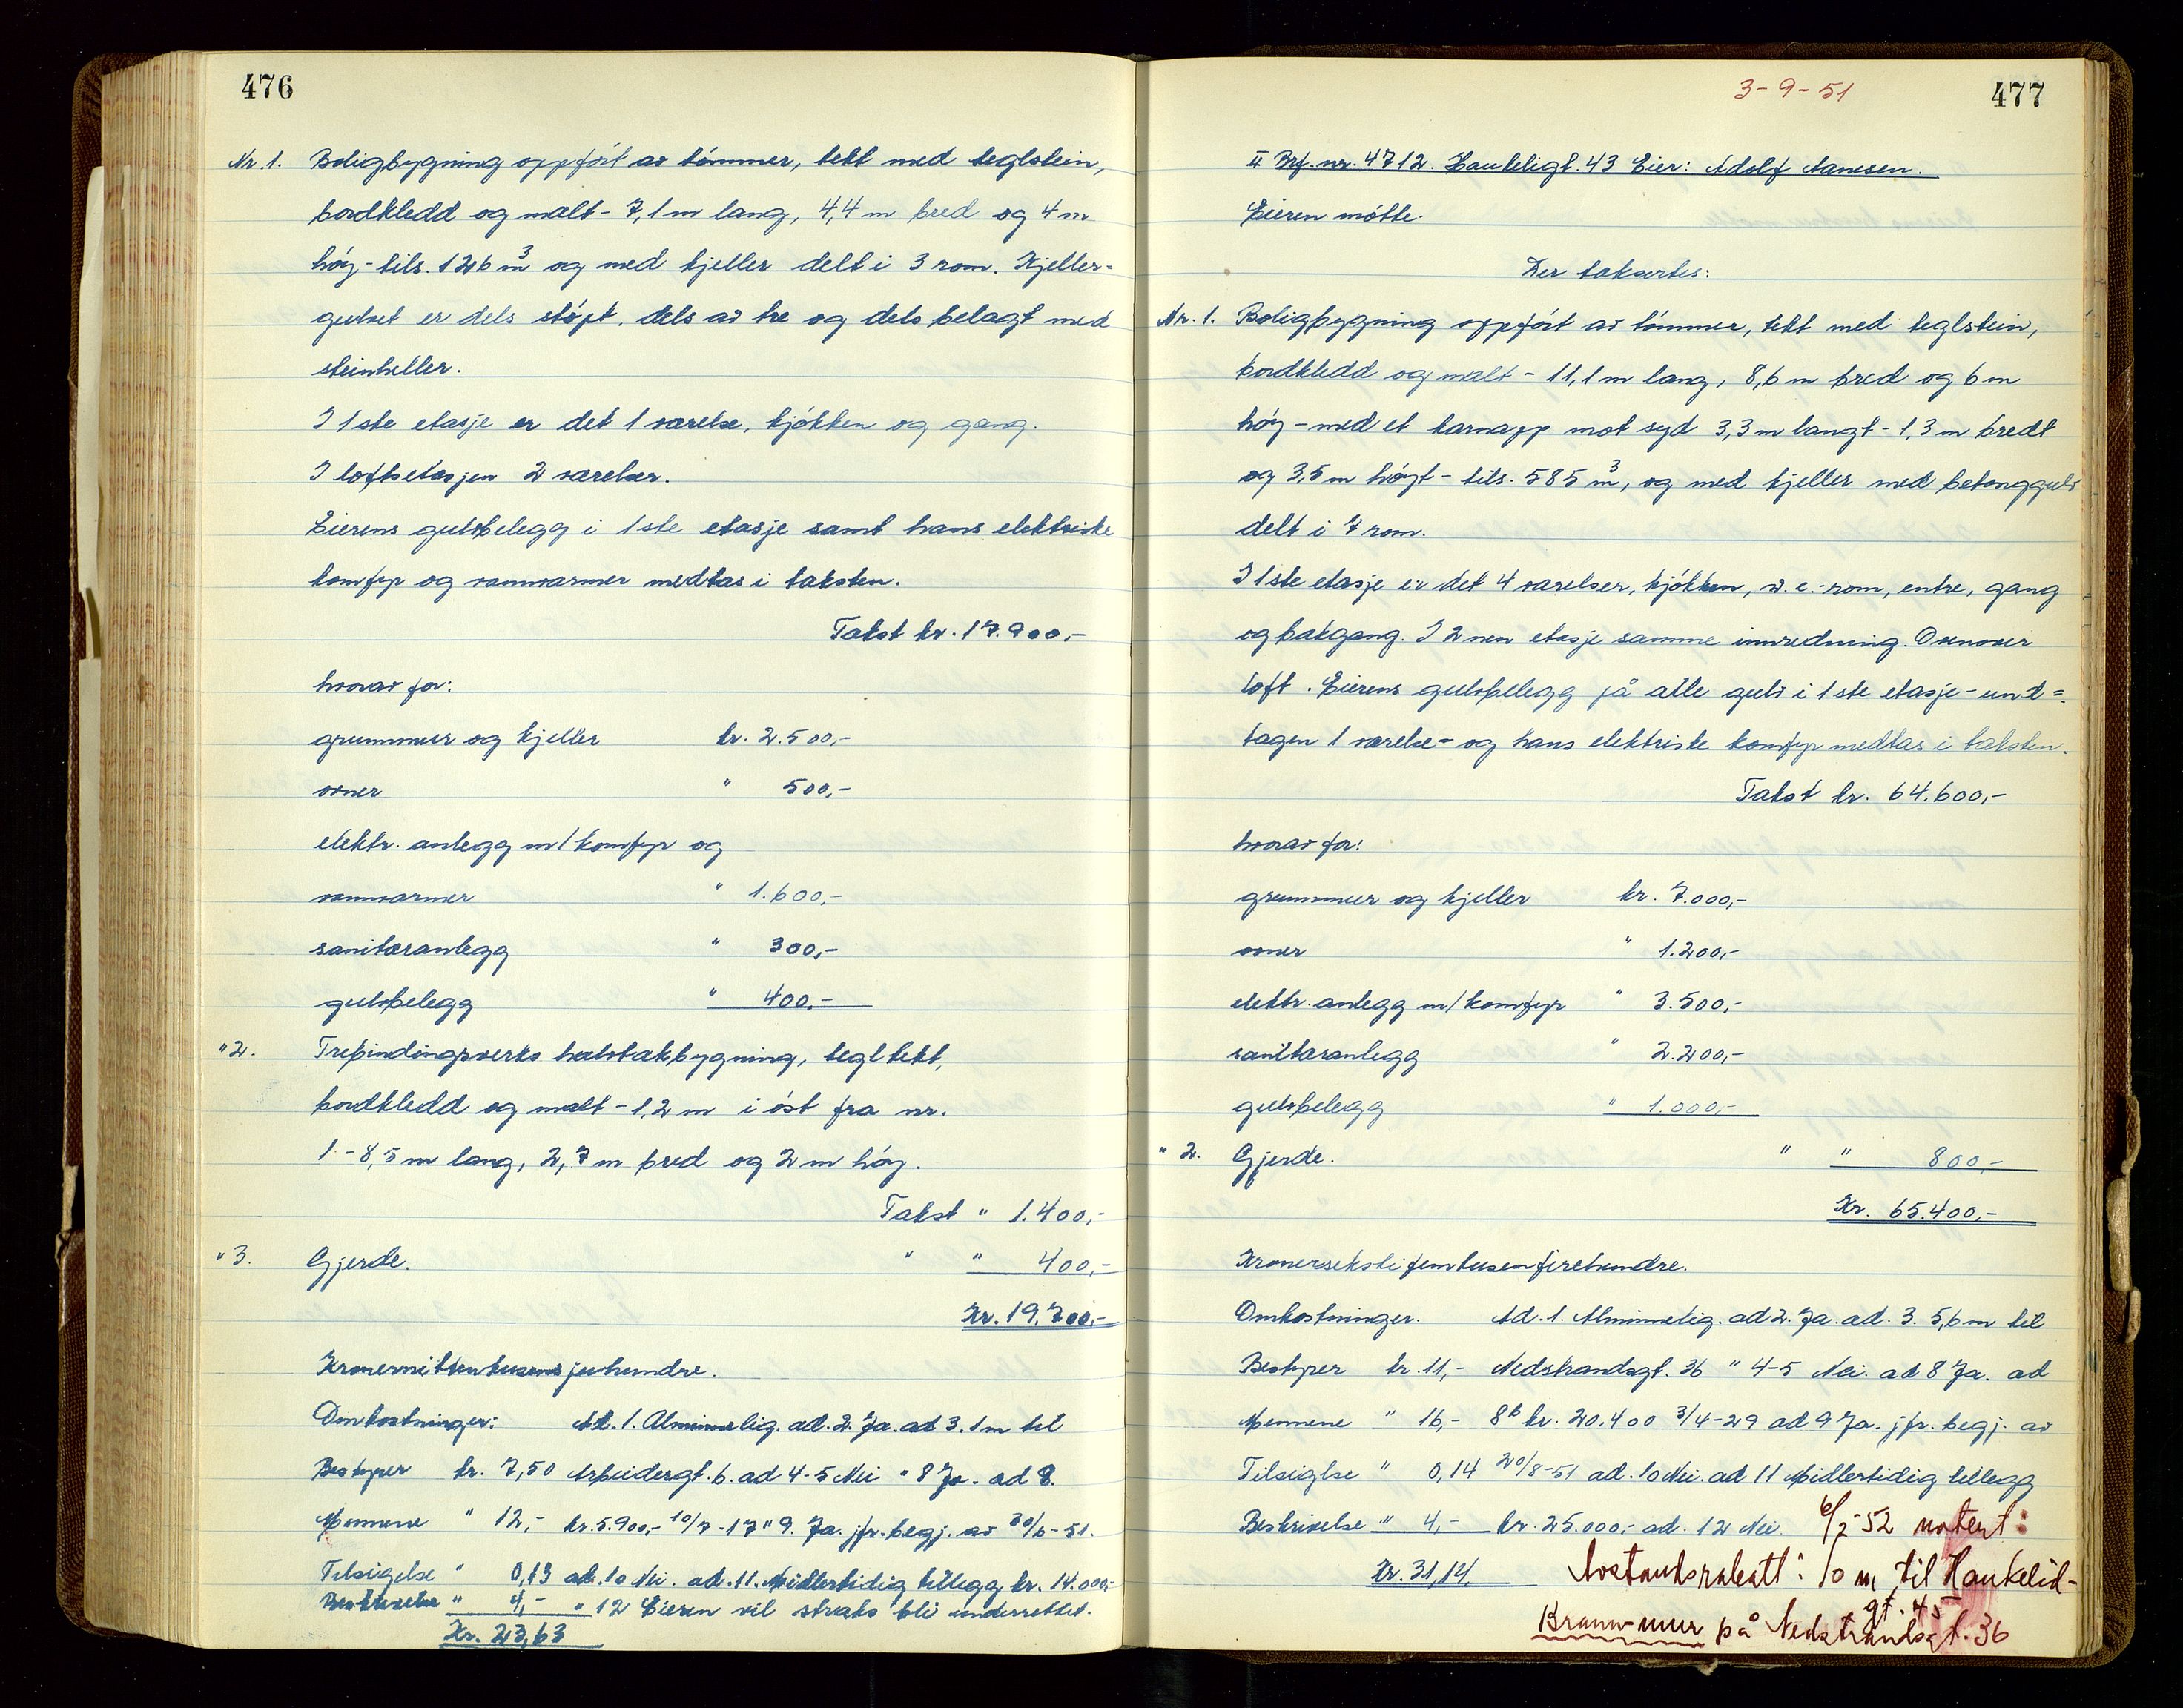 476
Nr. 1. Boligbygning oppført av tømmer, tekt med teglstein,
bordkledd og malt - 7,1 m lang, 4,4 m bred og 4 m
høg - tils. 126 m³ og med kjeller delt i 3 rom. Kjeller-
gulvet er dels støpt, dels av tre og dels belagt med
steinheller.
I 1ste etasje er det 1 værelse, kjøkken og gang.
I loftsetasjen 2 værelser.
Eierens gulvbelegg i 1ste etasje samt hans elektriske
komfyr og vannvarmer medtas i taksten.
Takst kr. 17.900,-
hvorav for:
grunnmur og kjeller kr. 2.500,-
ovner " 500,-
elektr. anlegg m/komfyr og
vannvarmer " 1.600,-
sanitæranlegg " 300,-
gulvbelegg " 400,-
" 2. Trebindingsverks halvtakbygning, tegltekt,
bordkledd og malt - 1,2 m i øst fra nr.
1 - 8,5 m lang, 2,7 m bred og 2 m høg.
Takst " 1.400,-
" 3. Gjerde. " " 400,-
Kr. 19.700,-
Kronernittentusensjuhundre.
Omkostninger: Ad. 1. Alminnelig. ad. 2. Ja. ad 3. 1 m til
Bestyrer kr. 7,50 Arbeidergt. 6. ad 4-5 Nei " 8 Ja. ad 8.
Mennene " 12,- kr. 5.900,- 10/7-17 " 9. Ja. jfr. begj. av 30/6-51.
Tilsigelse " 0,13 ad. 10 Nei. ad. 11. Midlertidig tillegg kr. 14.000,-
Beskrivelse " 4,- " 12 Eieren vil straks bli underrettet.
Kr. 23,63
3-9-51
477
II Brf. nr. 4712. Haukeligt. 43 Eier: Adolf Aanesen.
Eieren møtte.
Der taksertes:
Nr. 1. Boligbygning oppført av tømmer, tekt med teglstein,
bordkledd og malt - 11,1 m lang, 8,6 m bred og 6 m
høg - med et karnapp mot syd 3,3 m langt - 1,3 m bredt
og 3,5 m høgt - tils. 585 m³, og med kjeller med betonggulv
delt i 7 rom.
I 1ste etasje er det 4 værelser, kjøkken, w.c.-rom, entre, gang
og bakgang. I 2nen etasje samme innredning. Ovenover
loft. Eierens gulvbelegg på alle gulv i 1ste etasje - unt=
tagen 1 værelse - og hans elektriske komfyr medtas i taksten.
Takst kr. 64.600,-
hvorav for:
grunnmur og kjeller kr. 7.000,-
ovner " 1.200,-
elektr. anlegg m/komfyr " 3.500,-
sanitæranlegg " 2.200,-
gulvbelegg " 1.000,-
" 2. Gjerde. " " 800,-
Kr. 65.400,-
Kronersekstifemtusenfirehundre.
Omkostninger. Ad. 1. Alminnelig. ad 2. Ja. ad. 3. 5,6 m til
Bestyrer kr. 11,- Nedstrandsgt. 36 " 4-5 Nei. ad 8 Ja. ad
Mennene " 16,- 8b kr. 20.400 3/4-29 ad 9 Ja. jfr. begj. av
Tilsigelse " 0,14 20/8-51 ad. 10 Nei. ad 11 Midlertidig tillegg
Beskrivelse " 4,- kr. 25.000,- ad. 12 Nei. 6/2-52 notert:
Kr. 31,14 Avstandsrabatt: 10 m til Haukelid-
gt. 45
Brann-mur på Nedstrandsgt. 36